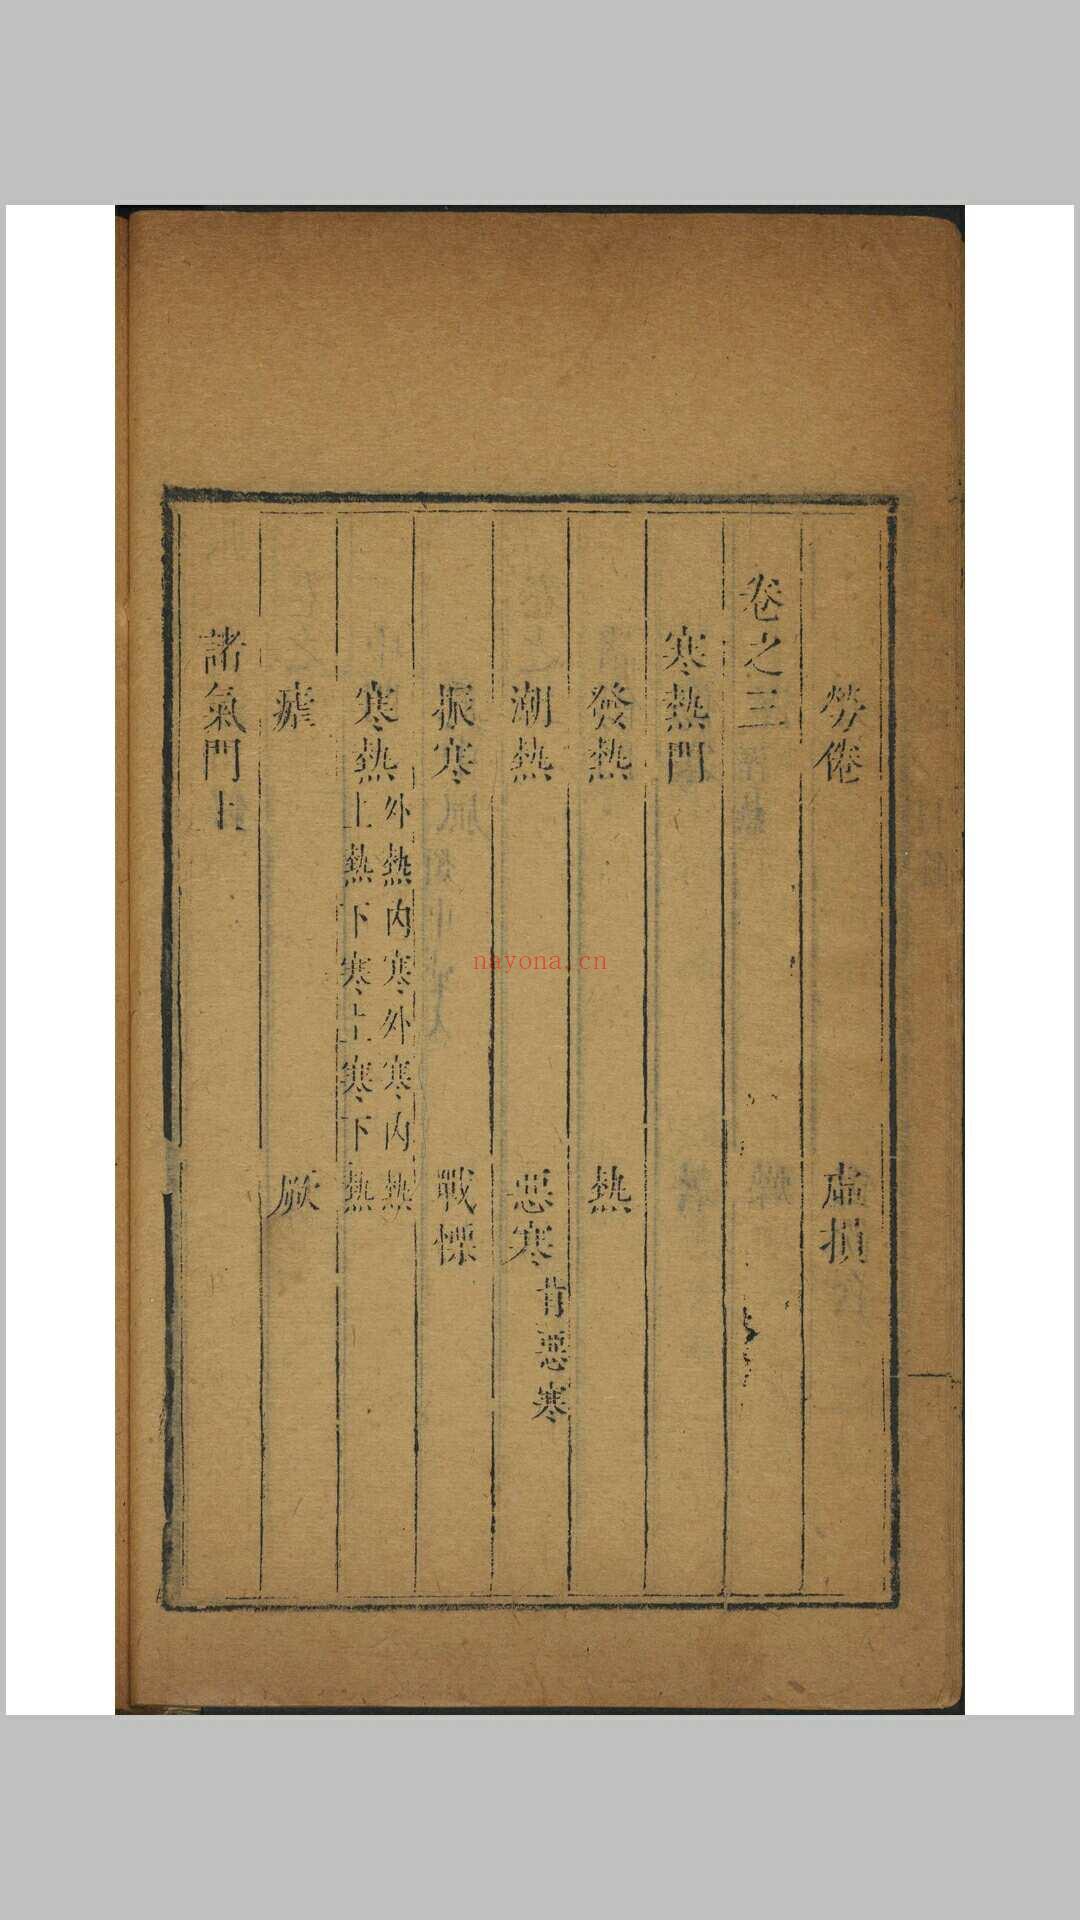 勞倦　虛損
卷之三
寒熱門
發熱　熱
潮熱　惡寒背惡寒
振寒　戰慄
寒熱外熱內寒外寒內熱
上熱下寒上寒下熱
瘧　厥
諸氣門上
nayona.cn